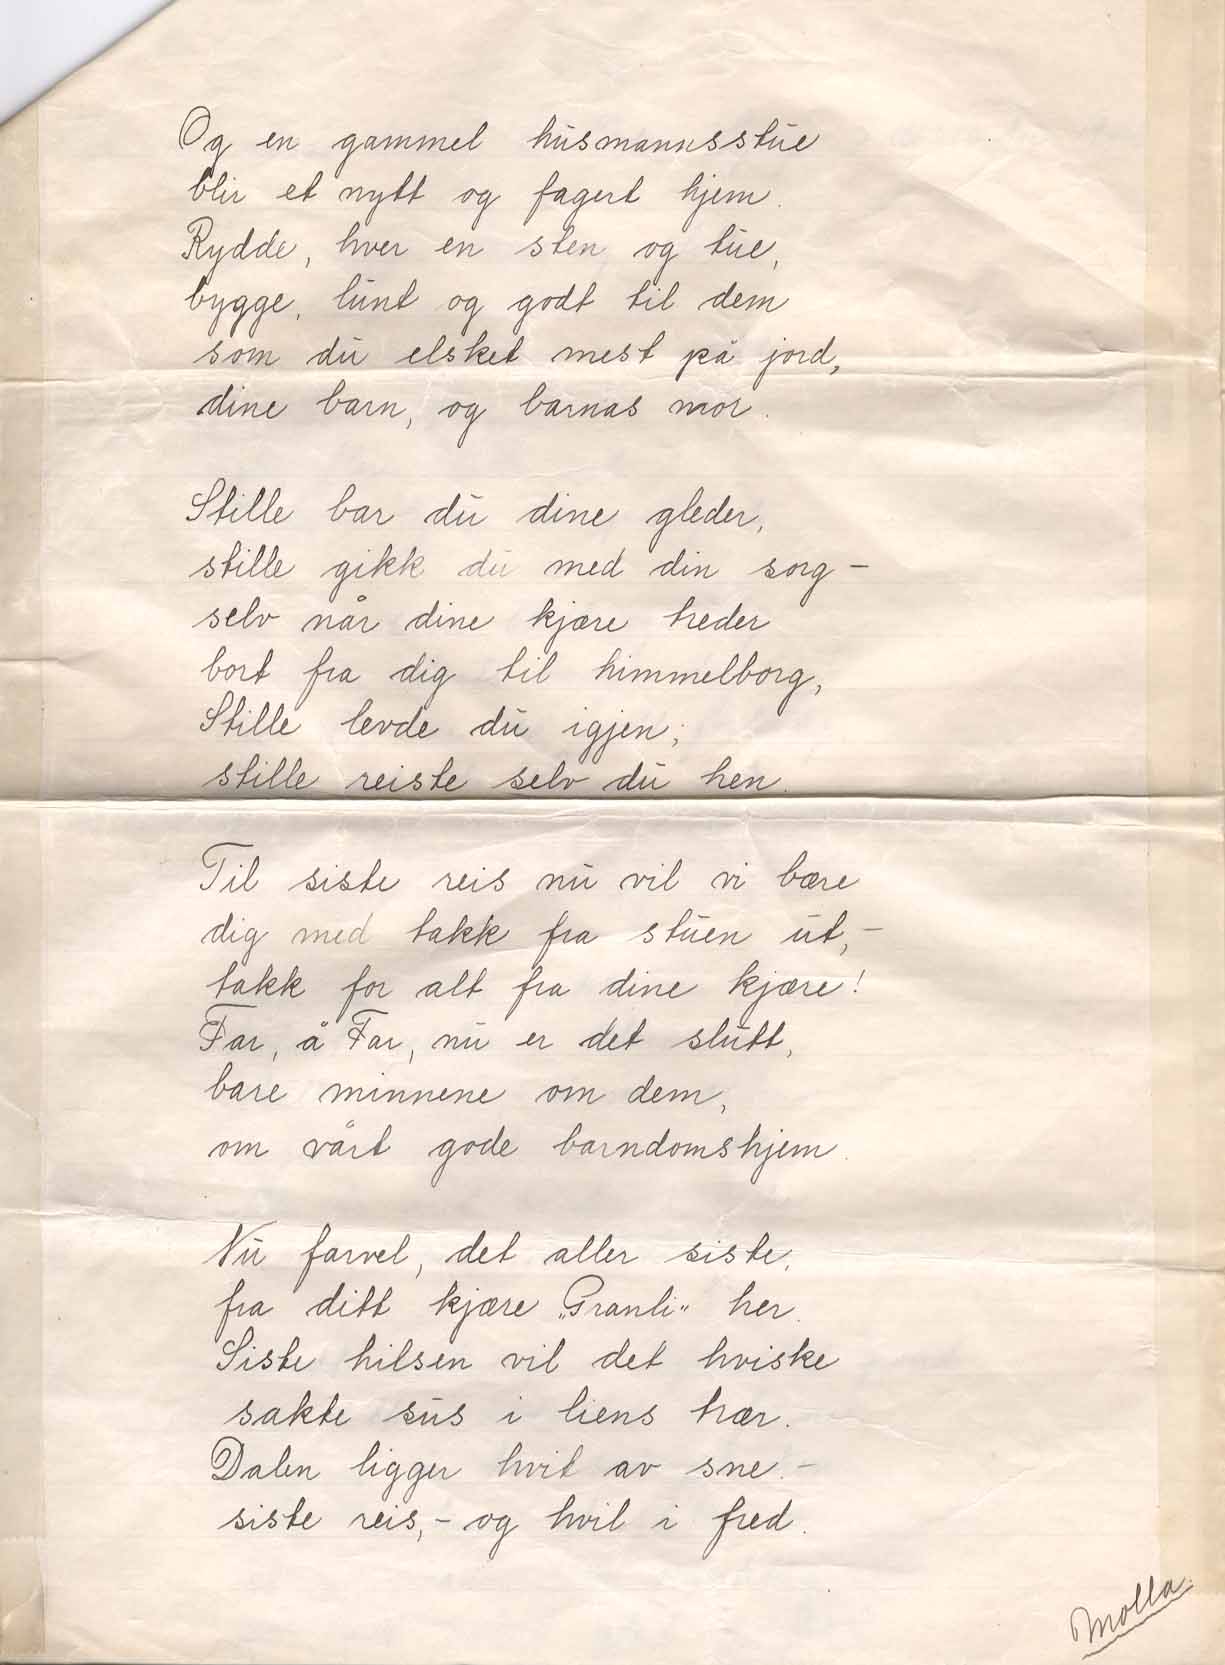 Og en gammel husmannsstue
blir et nytt og fagert hjem.
Rydde, hver en sten og tue,
bygge, lunt og godt til dem
som du elsket mest på jord,
dine barn, og barnas mor.
Stille bar du dine gleder,
stille gikk du med din sorg –
selv når dine kjære treder
bort fra dig til himmelborg,
Stille levde du igjen;
stille reiste selv du hen.
Til siste reis nu vil vi bære
dig med takk fra stuen ut, –
takk for alt fra dine kjære!
Far, å Far, nu er det slutt,
bare minnene om dem,
om vårt gode barndomshjem.
Nu farvel, det aller siste,
fra ditt kjære „Granli" her.
Siste hilsen vil det hviske
sakte sus i liens trær.
Dalen ligger hvit av sne. –
siste reis, – og hvil i fred.
Molla.